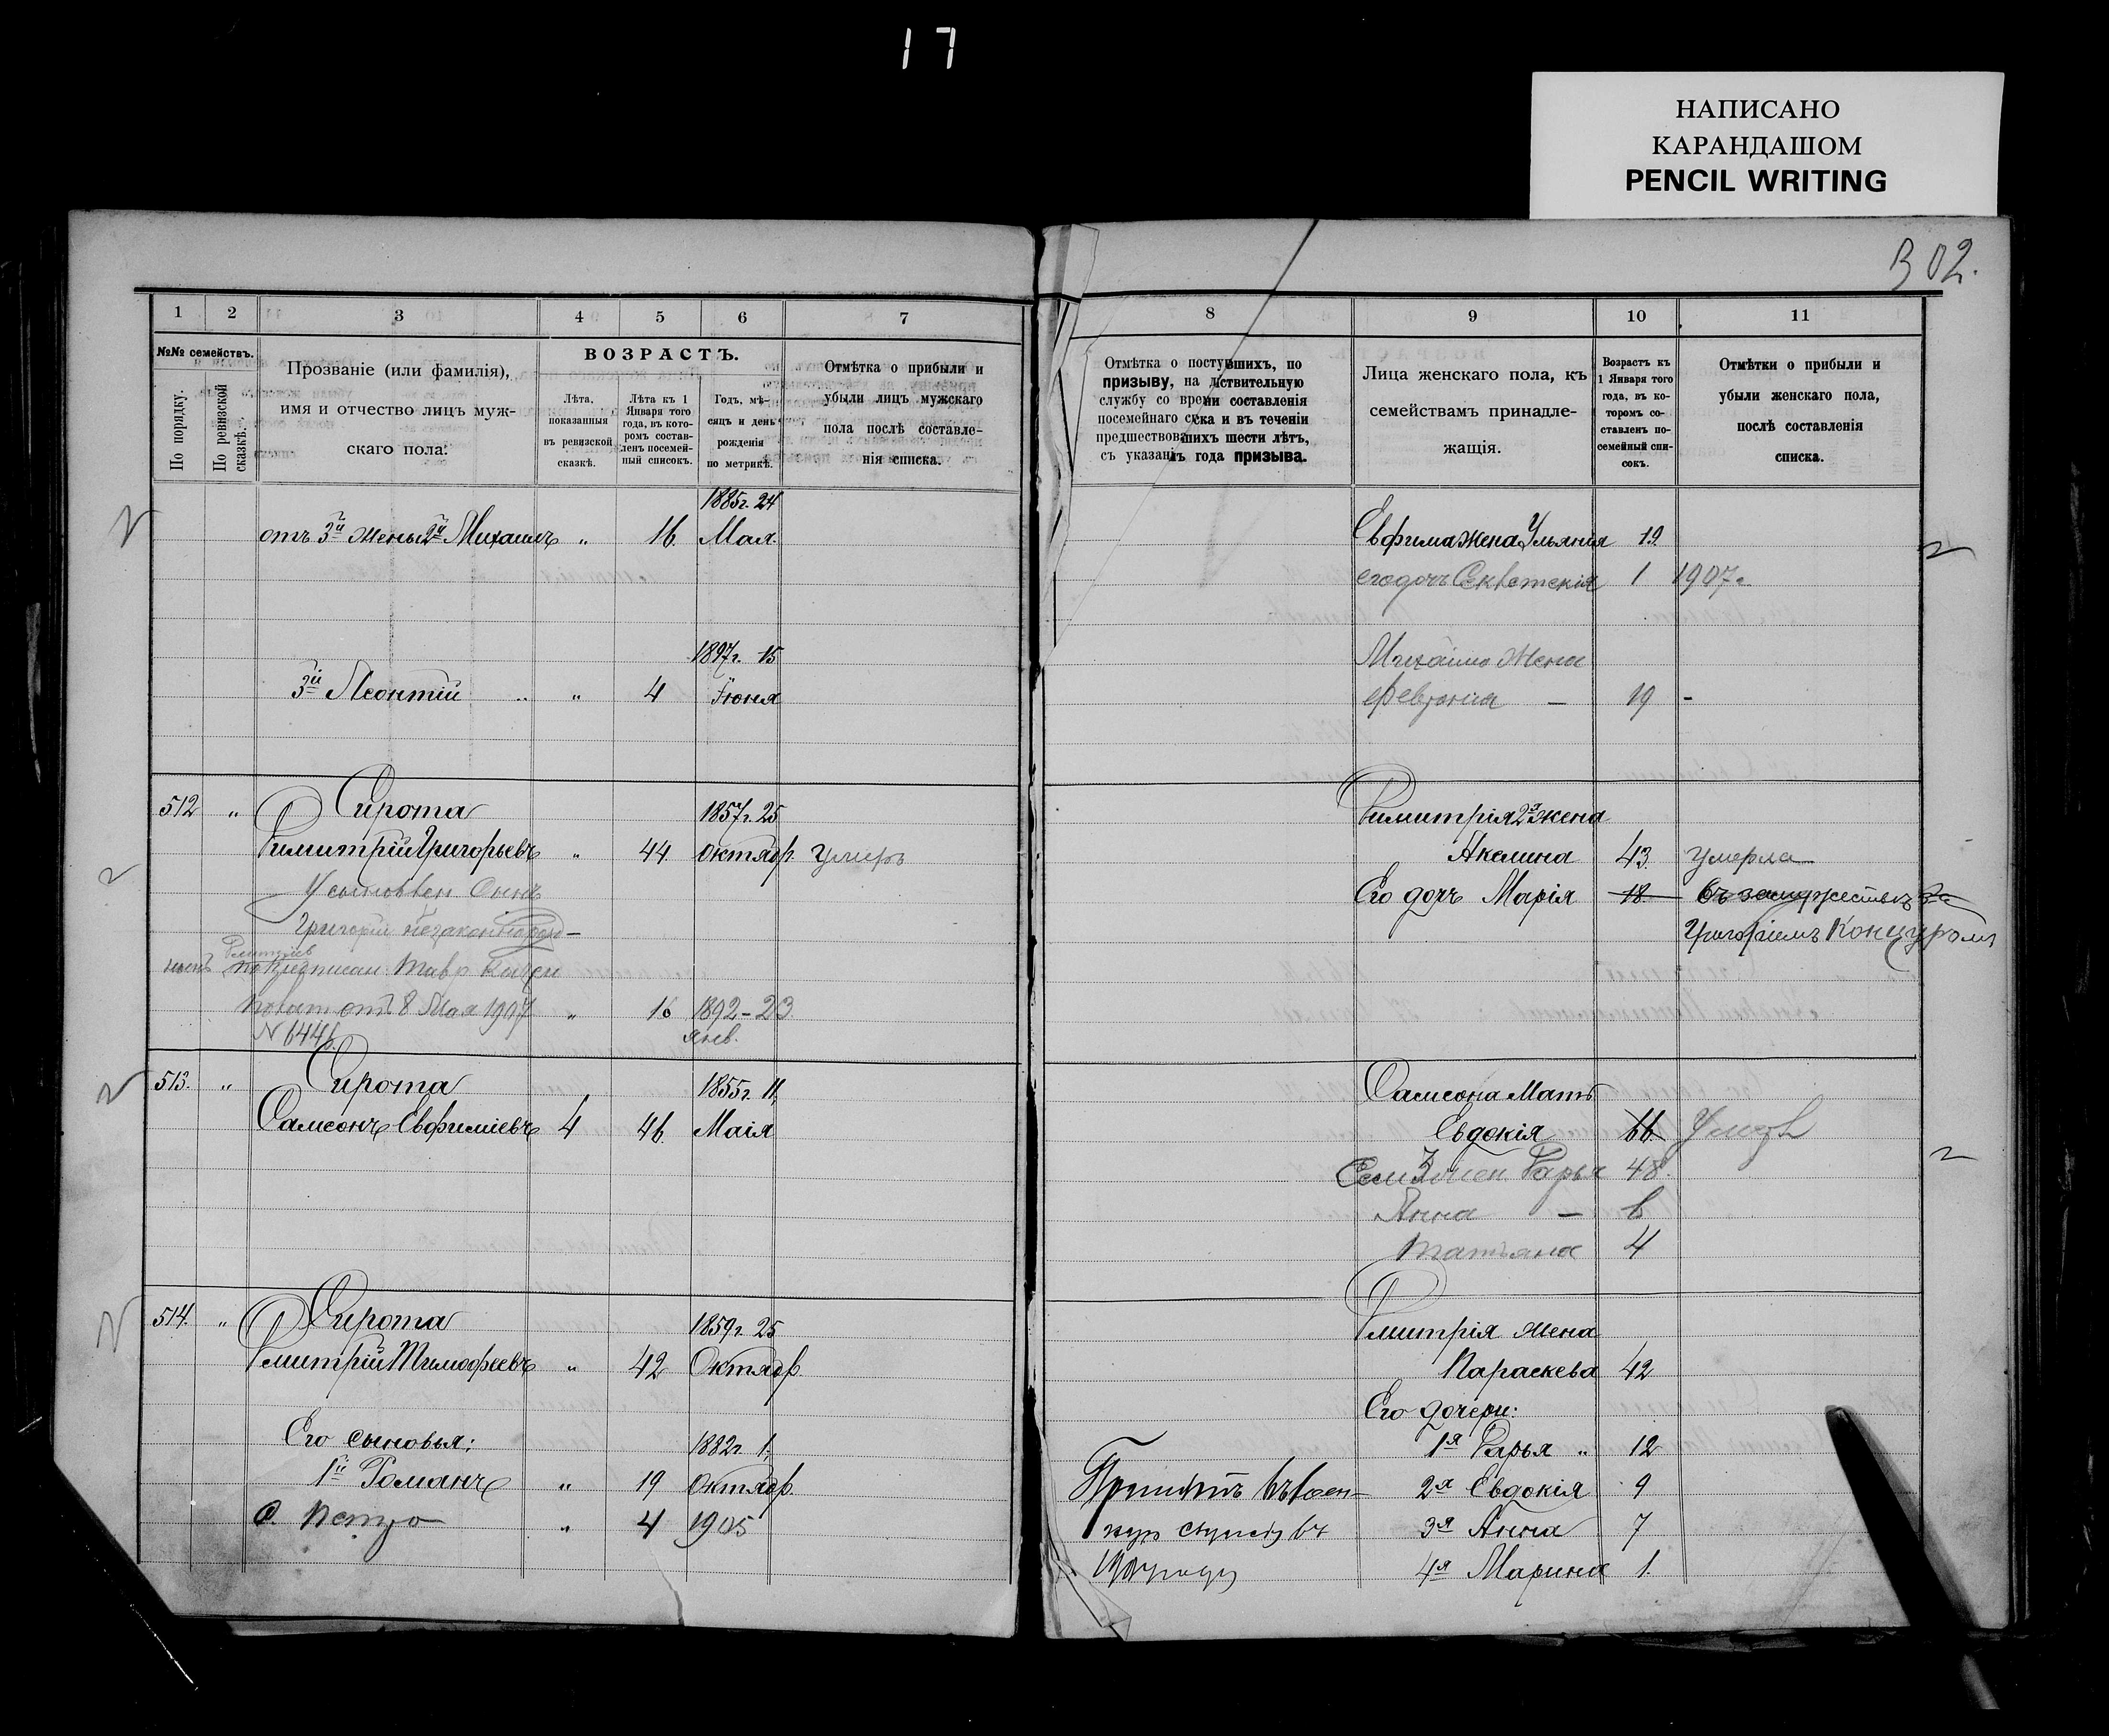 17
НАПИСАНО
КАРАНДАШОМ
PENCIL WRITING
302.
1 2 3 4 5 6 7
№№ семействъ.
По порядку.
По ревизской сказкѣ.
Прозваніе (или фамилія),
имя и отчество лицъ муж-
скаго пола:
ВОЗРАСТЪ.
Лѣта,
показанныя
въ ревизской
сказкѣ.
Лѣта къ 1
Января того
года, въ кото-
ромъ состав-
ленъ посемей-
ный списокъ.
Годъ, мѣ-
сяцъ и день
рожденія
по метрикѣ.
Отмѣтка о прибыли и
убыли лицъ мужскаго
пола послѣ составле-
нія списка.
1885г. 24
отъ 3й жены 2й Михаилъ " 16. Мая.
1897г. 15
3й Леонтій " " 4 Іюня
512 " Сирота 1857г. 25
Димитрій Григорьевъ " 44. Октябр. Умеръ
Усыновлен Сынъ
Григорій незаконнорожд-
Дмитріев
от 8 Мая 1907 " 16 1892-23
№ 6446. янв.
513. " Сирота 1855г. 11,
Самсонъ Евфиміевъ 4 46 Маія
514. " Сирота 1859г. 25
Дмитрій Тимофеевъ " 42 Октябр.
Его сыновья: 1882г 1,
1й Романъ " 19 Октябр.
с. Петро " 4 1905
8 9 10 11
Отмѣтка о поступившихъ, по
призыву, на дѣйствительную
службу со времени составленія
посемейнаго списка и въ теченіи
предшествовавшихъ шести лѣтъ,
съ указаніемъ года призыва.
Лица женскаго пола, къ
семействамъ принадле-
жащія.
Возрастъ къ
1 Января того
года, въ ко-
торомъ со-
ставленъ по-
семейный спи-
сокъ.
Отмѣтки о прибыли и
убыли женскаго пола,
послѣ составленія
списка.
Евфима жена Ульянія 19.
его дочь 1 1907г.
Михайло Жена
Февронія - 19 -
Димитрія 2я жена
Акелина 43. умерла
Его дочь Марія 18 въ замужествѣ за
Григоріемъ Концуромъ
Самсона Мать
Евдокія 66 Умер
Сам 2 жен. Дарья 48.
Анна - 6
Татьяна 4
Дмитрія жена
Параскева 42
Его дочери:
1я Дарья " 12
2я Евдокія 9
3я Анна 7
4я Марина 1.
Принятъ въ воен-